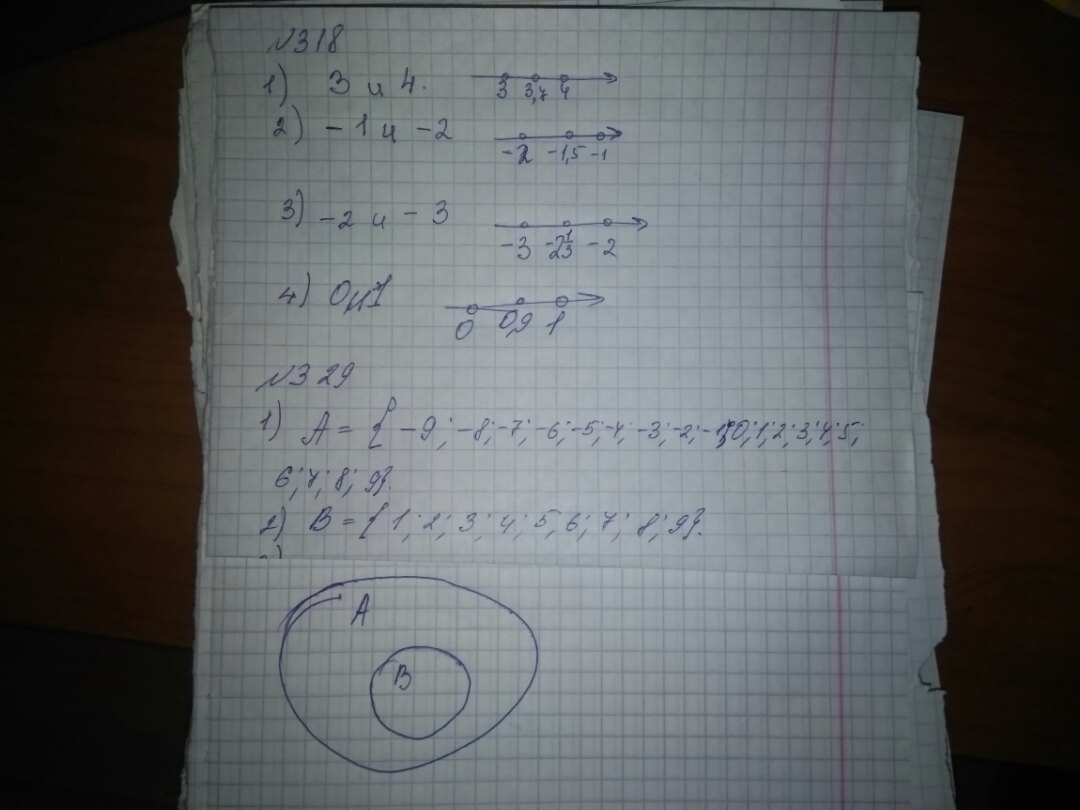 №318
1) 3 и 4. 3 3,7 4
2) -1 и -2 -2 -1,5 -1
3) -2 и -3 -3 -2 1/3 -2
4) 0 и 1 0 0,9 1
№329
1) A = { -9; -8; -7; -6; -5; -4; -3; -2; -1; 0; 1; 2; 3; 4; 5;
6; 7; 8; 9}.
2) B = { 1; 2; 3; 4; 5, 6; 7; 8; 9}.
A
B